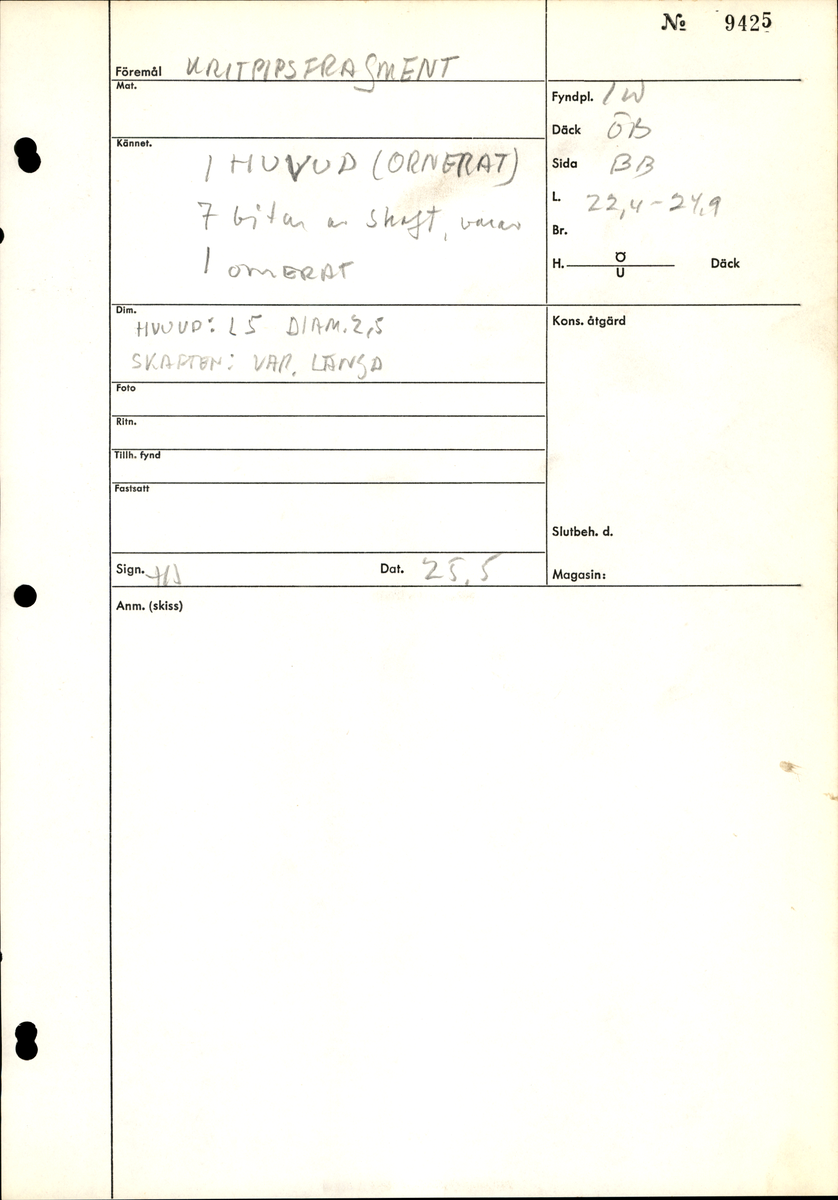 No 9425
Föremål KRITPIPSFRAGMENT
Mat.
Fyndpl. 1W
Däck ÖB
Kännet.
1 HUVUD (ORNERAT)
7 bitar av skaft, varav
1 ORNERAT
Sida BB
L. 22,4-24,9
Br.
H. Ö/U Däck
Dim.
HUVUD: L 5 DIAM. 2,5
SKAFTEN: VAR. LÄNGD
Kons. åtgärd
Foto
Ritn.
Tillh. fynd
Fastsatt
Slutbeh. d.
Sign. Dat. 25.5
Magasin:
Anm. (skiss)